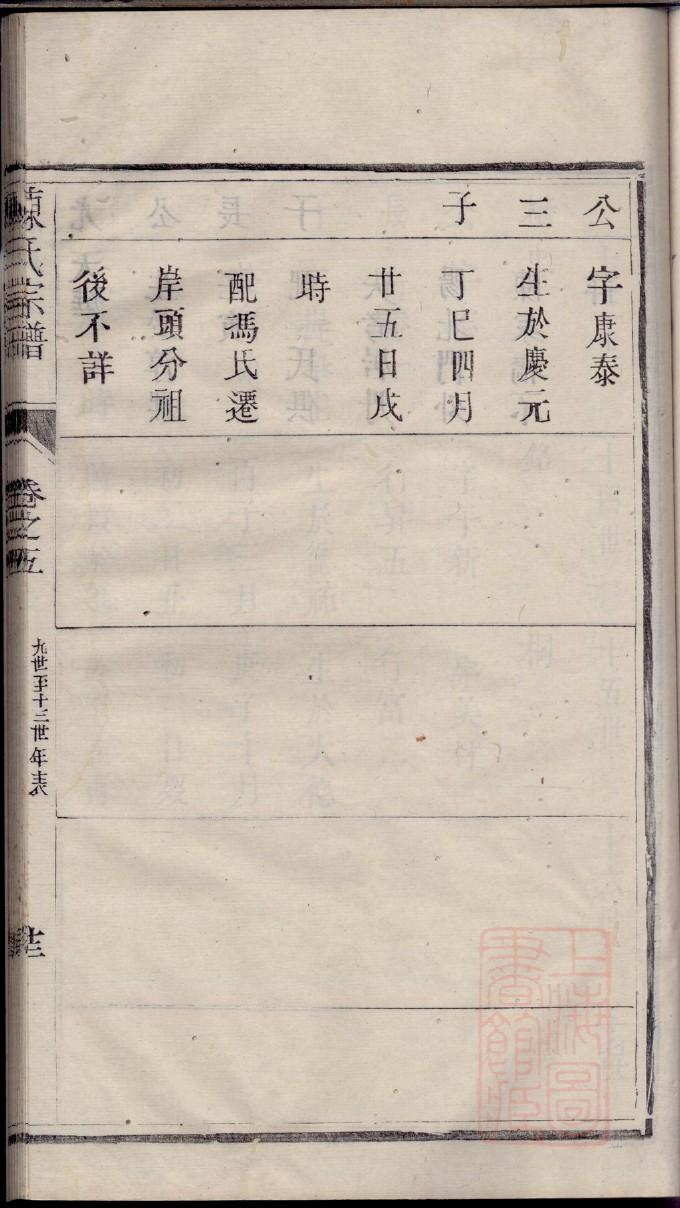 公
三
子
字康泰
生於慶元
丁巳四月
廿五日戌
時
配馮氏遷
岸頭分祖
後不詳
氏宗譜
卷之五
九世至十三世年表
上海圖
書館藏